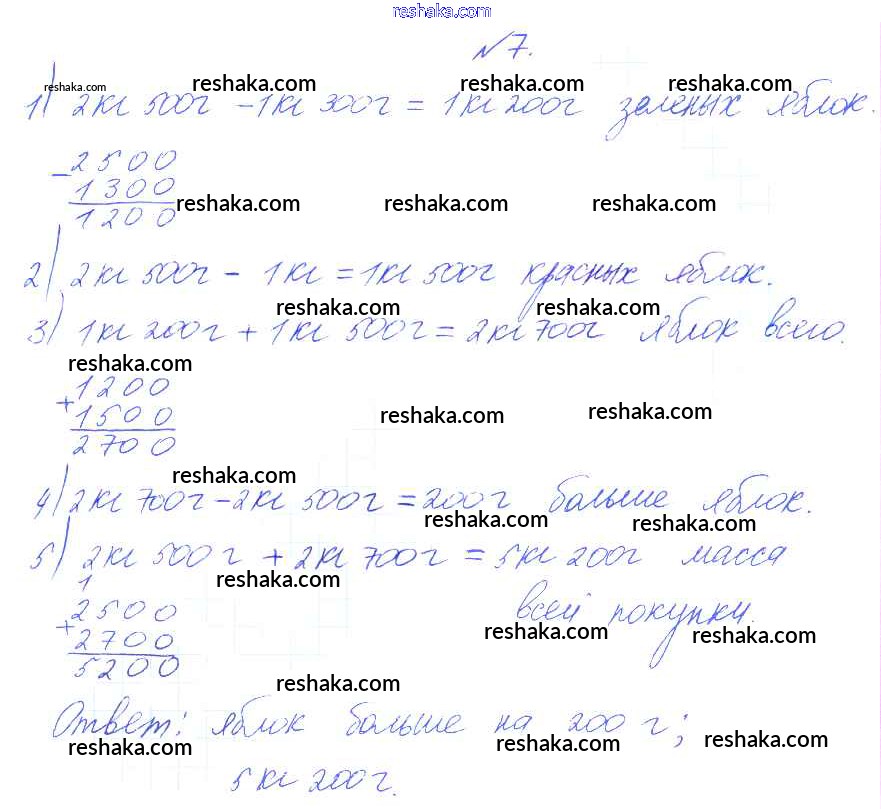 reshaka.com
№7.
reshaka.com reshaka.com reshaka.com reshaka.com
1) 2кг 500г - 1кг 300г = 1кг 200г зеленых яблок.
- 2500
1300
1200
reshaka.com reshaka.com reshaka.com
2) 2кг 500г - 1кг = 1кг 500г красных яблок.
reshaka.com reshaka.com
3) 1кг 200г + 1кг 500г = 2кг 700г яблок всего.
reshaka.com
+ 1200
1500
2700
reshaka.com reshaka.com
reshaka.com
4) 2кг 700г - 2кг 500г = 200г больше яблок.
reshaka.com reshaka.com
5) 2кг 500г + 2кг 700г = 5кг 200г масса
reshaka.com
всей покупки.
1
+ 2500
2700
5200
reshaka.com reshaka.com
reshaka.com
Ответ: яблок больше на 200 г;
reshaka.com reshaka.com reshaka.com
5кг 200г.